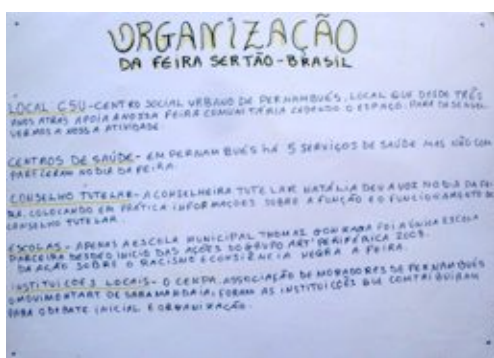 ORGANIZAÇÃO
DA FEIRA SERTÃO-BRASIL
LOCAL CSU-CENTRO SOCIAL URBANO DE PERNAMBUÉS, LOCAL QUE DESDE TRÊS
ANOS ATRAS APOIA A NOSSA FEIRA COMUNITÁRIA CEDENDO O ESPAÇO, PARA DESENVOL
VERMOS A NOSSA ATIVIDADE.
CENTROS DE SAÚDE- EM PERNAMBUÉS HÁ 5 SERVIÇOS DE SAÚDE MAS NÃO COM
PARECERAM NO DIA DA FEIRA.
CONSELHO TUTELAR- A CONSELHEIRA TUTELAR NATÁLIA DEU A VOZ NO DIA DA FEI
RA, COLOCANDO EM PRÁTICA INFORMAÇÕES SOBRE A FUNÇÃO E O FUNCIONAMENTO DO
CONSELHO TUTELAR.
ESCOLAS- APENAS A ESCOLA MUNICIPAL THOMAZ GONZAGA FOI A ÚNICA ESCOLA
PARCEIRA DESDE O INICIO DAS AÇÕES DO GRUPO ART' PERIFÉRICA 2009.
DA AÇÃO SOBRE O RACISMO E CONSIÊNCIA NEGRA A FEIRA.
INSTITUIÇÕES LOCAIS- O CENPA, ASSOCIAÇÃO DE MORADORES DE PERNAMBUÉS
O MOVIMENTART DE SARAMANDAIA, FORAM AS INSTITUIÇÕES QUE CONTRIBUIRAM
PARA O DEBATE INICIAL E ORGANIZAÇÃO.